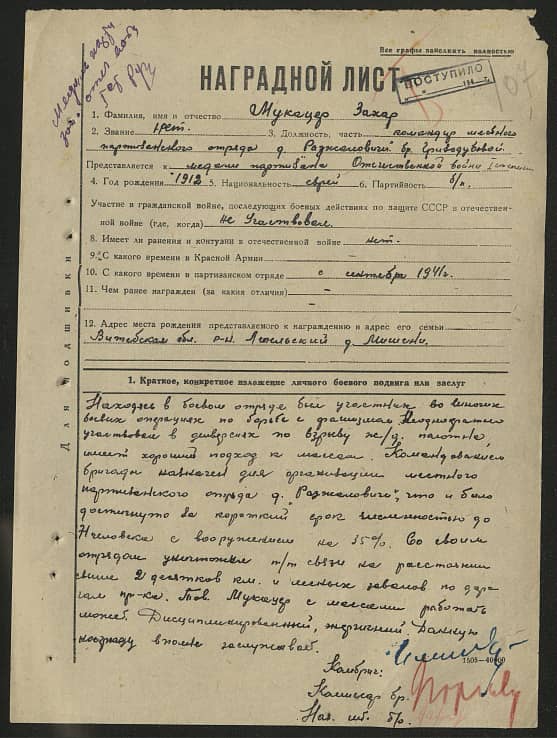 Все графы заполнять полностью
НАГРАДНОЙ ЛИСТ
ПОСТУПИЛО
107
1. Фамилия, имя и отчество Мукацер Захар
2. Звание нет. 3. Должность, часть командир местного
партизанского отряда д. Раджаловичи бр. Гризодубовой
Представляется к медали партизана Отечественной войны I степени
4. Год рождения 1912 5. Национальность еврей 6. Партийность б/п.
Участие в гражданской войне, последующих боевых действиях по защите СССР и отечествен-
ной войне (где, когда) не Участвовал.
8. Имеет ли ранения и контузии в отечественной войне нет.
9. С какого времени в Красной Армии –
10. С какого времени в партизанском отряде с сентября 1941г.
11. Чем ранее награжден (за какие отличия) –
12. Адрес места рождения представляемого к награждению и адрес его семьи
Витебская обл. р-н. Лепельский д.
Для подшивки
1. Краткое, конкретное изложение личного боевого подвига или заслуг
Находясь в боевом отряде был участник во многих
боевых операциях по борьбе с фашизмом. Неоднократно
участвовал в диверсиях по взрыву ж/д. полотна,
имеет хороший подход к массам. Командованием
бригады назначен для организации местного
партизанского отряда д. "Раджаловичи", что и было
достигнуто за короткий срок численностью до
человека с вооружением на 35%. Со своим
отрядом уничтожил т/т связи на расстоянии
свыше 2 десятков км. и лесных завалов по доро-
гам пр-ка. Тов. Мукацер с массами работать
может. Дисциплинированный, энергичный. Данную
награду вполне заслуживает.
1505-40000
Комбриг:
Комиссар бр.
Нач. шт. бр.